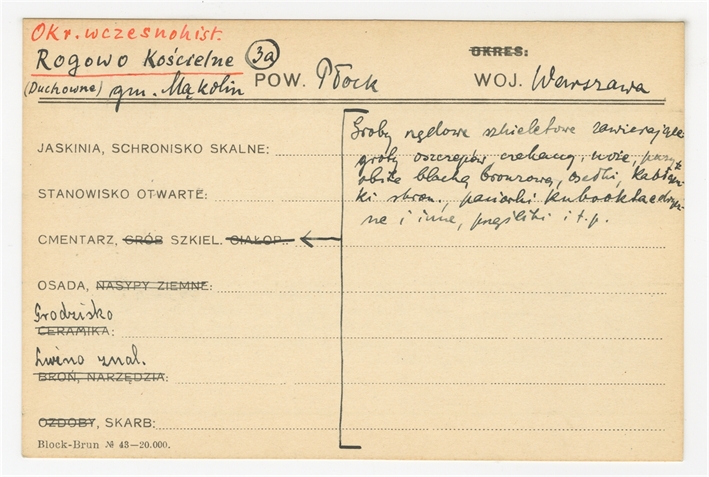 Okr. wczesnohist.
Rogowo Kościelne 3a
OKRES:
(Duchowne) gm. Mąkolin POW. Płock WOJ. Warszawa
JASKINIA, SCHRONISKO SKALNE:
STANOWISKO OTWARTE:
CMENTARZ, GRÓB SZKIEL. CIAŁOP.:
OSADA, NASYPY ZIEMNE:
Grodzisko
CERAMIKA:
Luźno znal.
BROŃ, NARZĘDZIA:
OZDOBY, SKARB:
Block-Brun № 43—20.000.
Groby rzędowe szkieletowe zawierające
groty oszczepów, czekany, noże,
obite blachą bronzową, osełki, kabłącz-
ki skron., paciorki kubooktaedrycz-
ne i inne, przęśliki i t. p.